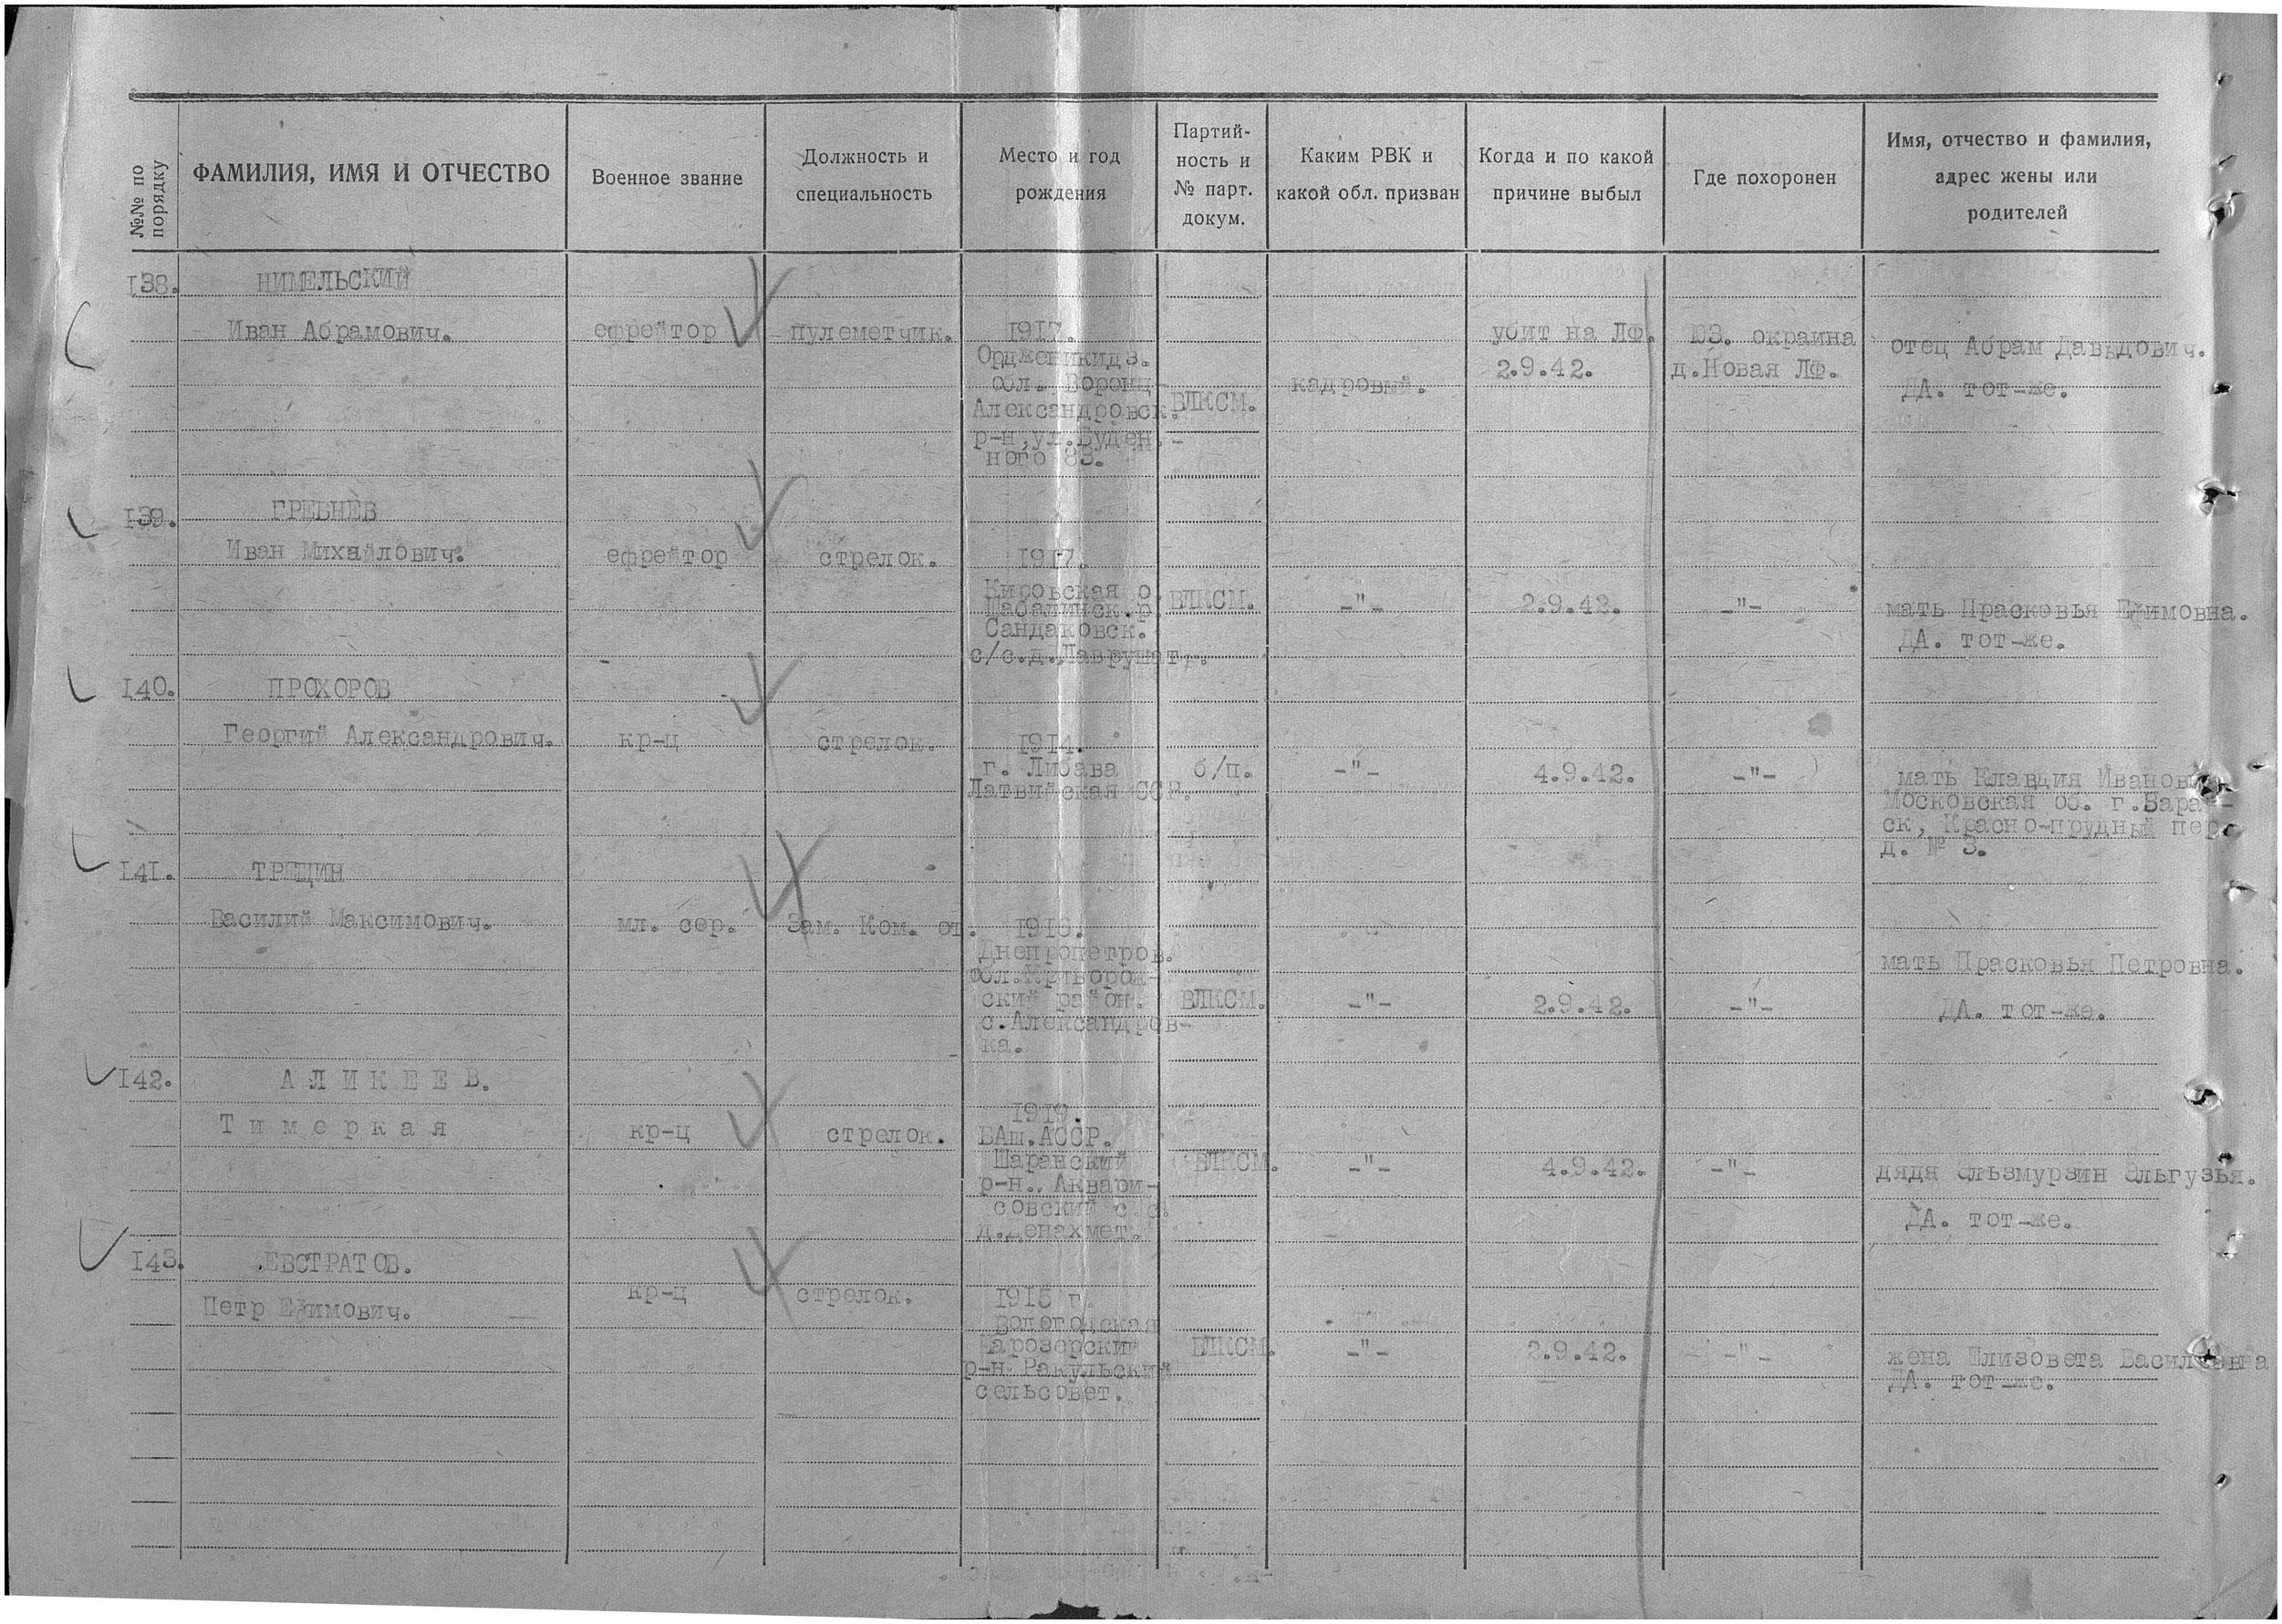 №№ по порядку
ФАМИЛИЯ, ИМЯ И ОТЧЕСТВО
Военное звание
Должность и
специальность
Место и год
рождения
Партий-
ность и
№ парт.
докум.
Каким РВК и
какой обл. призван
Когда и по какой
причине выбыл
Где похоронен
Имя, отчество и фамилия,
адрес жены или
родителей
138.
НИМЕЛЬСКИЙ
Иван Абрамович.
ефрейтор
пулеметчик.
1917.
Ордженикидз.
обл. Воронц-
Александровск.
р-н, ул. Буден.-
ного 83.
ВЛКСМ.
кадровый.
убит на ЛФ.
2.9.42.
ЮЗ. окраина
д.Новая ЛФ.
отец Абрам Давыдович.
ДА. тот-же.
139.
ГРЕБНЕВ
Иван Михайлович.
ефрейтор
стрелок.
1917.
Кировская о.
Шабалинск.р.
Сандаковск.
с/с.д.Лаврушат
ВЛКСМ.
-"-
2.9.42.
-"-
мать Прасковья Ефимовна.
ДА. тот-же.
140.
ПРОХОРОВ
Георгий Александрович.
кр-ц
стрелок.
1914.
г. Либава
Латвийская ССР.
б/п.
-"-
4.9.42.
-"-
мать Клавдия
Московская об. г.
ск, Красно-прудный пер.
д. № 3.
141.
ТРЕЩИН
Василий Максимович.
мл. сер.
Зам. Ком. от.
1916.
Днепропетров.
обл.Криворож-
ский район.
с.Александров-
ка.
ВЛКСМ.
-"-
2.9.42.
-"-
мать Прасковья Петровна.
ДА. тот-же.
142.
АЛИКЕЕВ.
Тимеркая
кр-ц
стрелок.
1919.
БАш.АССР.
Шаранский
р-н.. Аквари-
совский с.с.
ВЛКСМ.
-"-
4.9.42.
-"-
дядя Эльзмурзин Эльгузья.
ДА. тот-же.
143.
ЕВСТРАТОВ.
Петр Ефимович.
кр-ц
стрелок.
1915 г.
Вологодская
Чарозерский
р-н Ракульский
сельсовет.
ВЛКСМ.
-"-
2.9.42.
-"-
жена Елизовета Васильевна
ДА. тот-же.